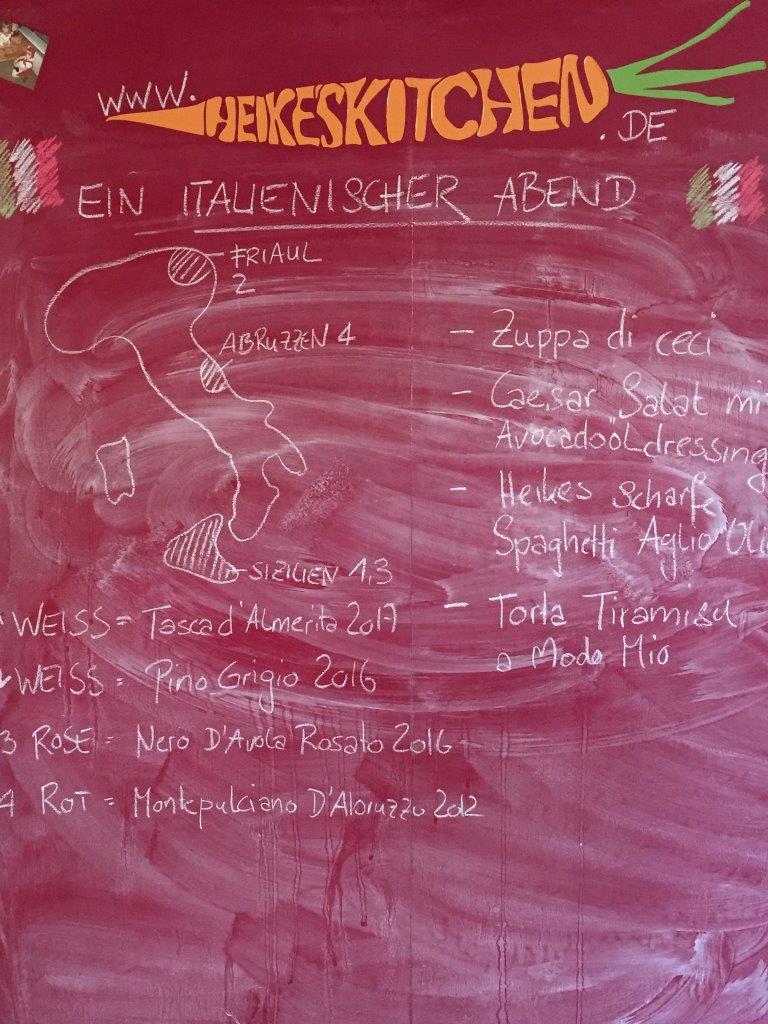 www.
HEIKE'SKITCHEN
.DE
EIN ITALIENISCHER ABEND
FRIAUL
2
ABRUZZEN 4
SIZILIEN 1,3
- Zuppa di ceci
- Caesar Salat mi
Avocadoöldressing
- Heikes scharfe
Spaghetti Aglio Oli
- Torta Tiramisu
a Modo Mio
WEISS = Tasca d'Almerita 2017
WEISS = Pino Grigio 2016
3 ROSE = Nero D'Avola Rosato 2016
4 ROT = Montepulciano D'Abruzzo 2012